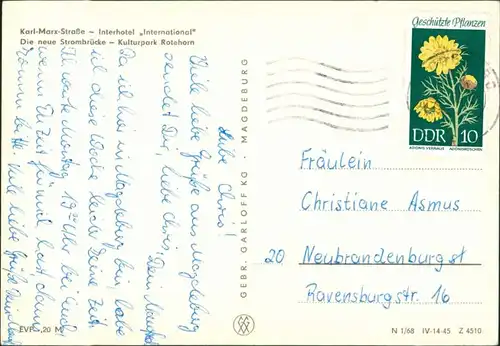 Karl-Marx-Straße ~ Interhotel „International"
Die neue Strombrücke ~ Kulturpark Rotehorn
Liebe Chris!
Viele liebe Grüße aus Magdeburg
sendet Dir, liebe Chris, Dein Manfred
Da ich hier in Magdeburg bin, habe
ich diese Woche keine Zeit.
Montag 19 Uhr bei Euch
wenn Du Zeit für mich hast dann
Viele liebe Grüße Dein
EVP -,20 M
GEBR. GARLOFF KG · MAGDEBURG
Geschützte Pflanzen
DDR 10
ADONIS VERNALIS ADONISRÖSCHEN
Fräulein
Christiane Asmus
20 Neubrandenburg st
Ravensburgstr. 16
N 1/68 IV-14-45 Z 4510